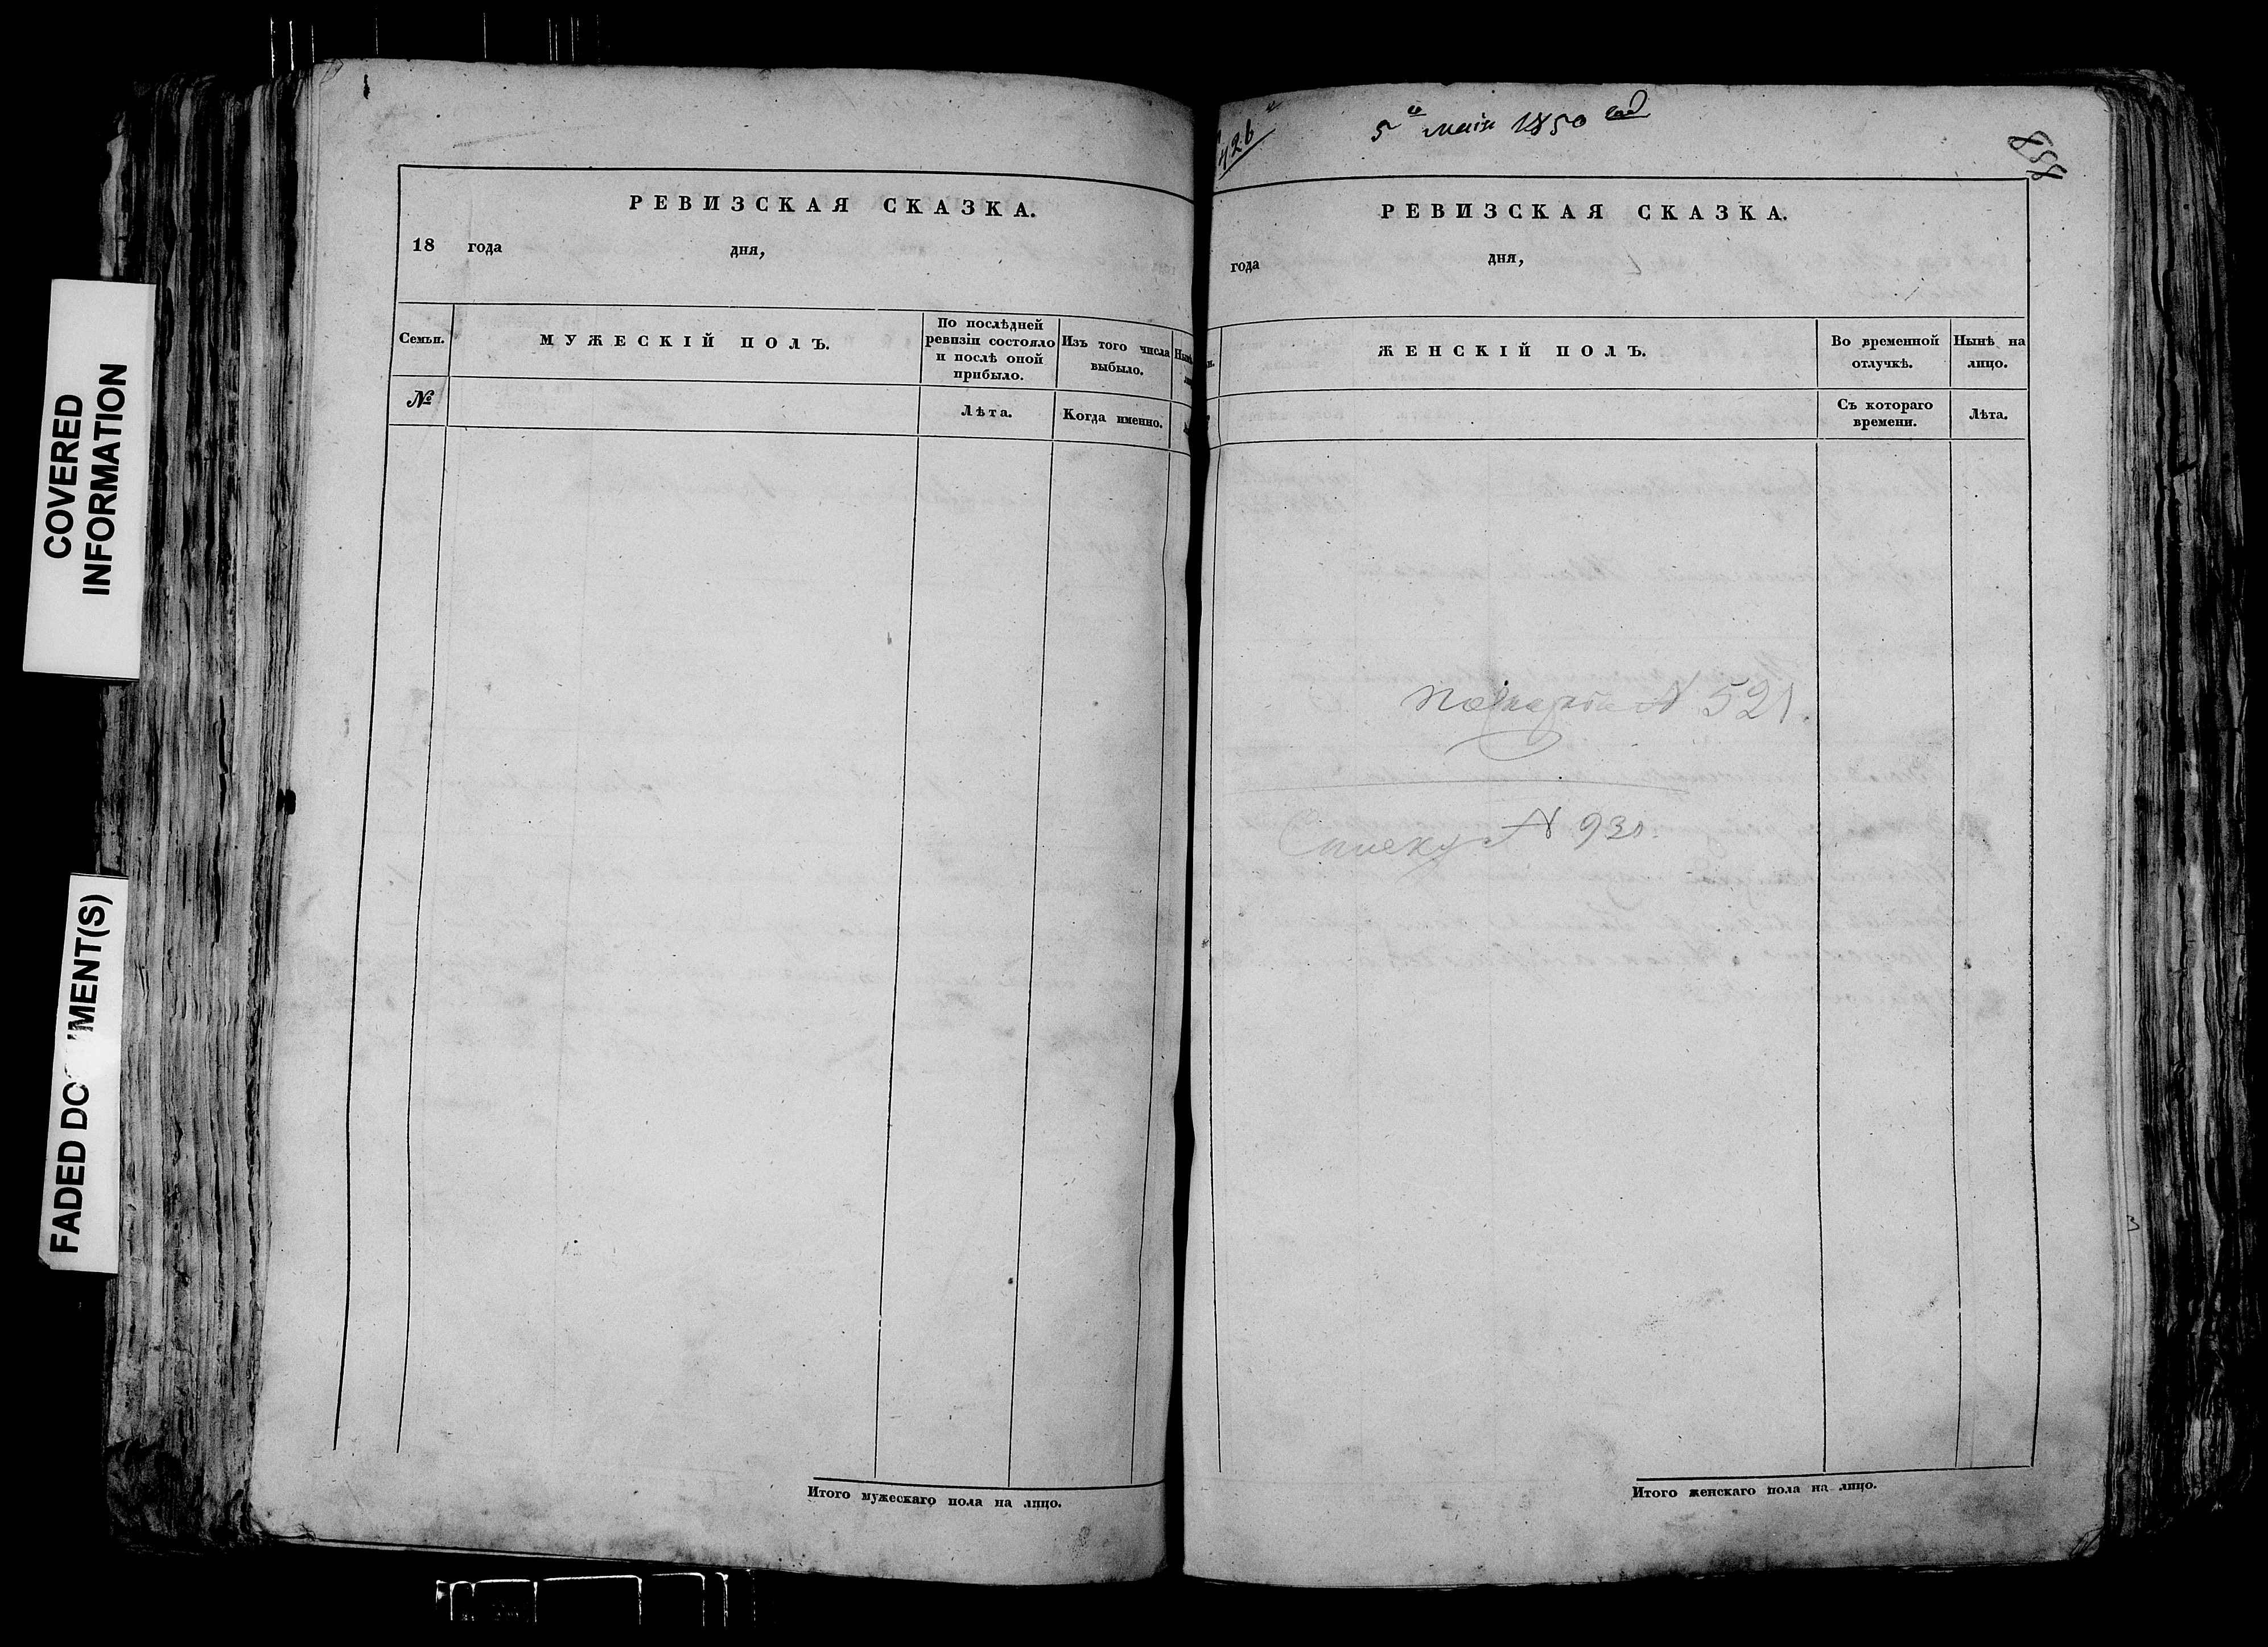 COVERED
INFORMATION
FADED DOCUMENT(S)
РЕВИЗСКАЯ СКАЗКА.
18 года дня,
Семьи. МУЖЕСКІЙ ПОЛЪ. По послѣдней ревизіи состояло и послѣ оной прибыло. Изъ того числа выбыло.
№ Лѣта. Когда именно.
Итого мужескаго пола на лицо.
426
5го маія 1850 год
858
РЕВИЗСКАЯ СКАЗКА.
года дня,
ЖЕНСКІЙ ПОЛЪ. Во временной отлучкѣ. Нынѣ на лицо.
Съ котораго времени. Лѣта.
N 521.
Списку N 931
3
Итого женскаго пола на лицо.